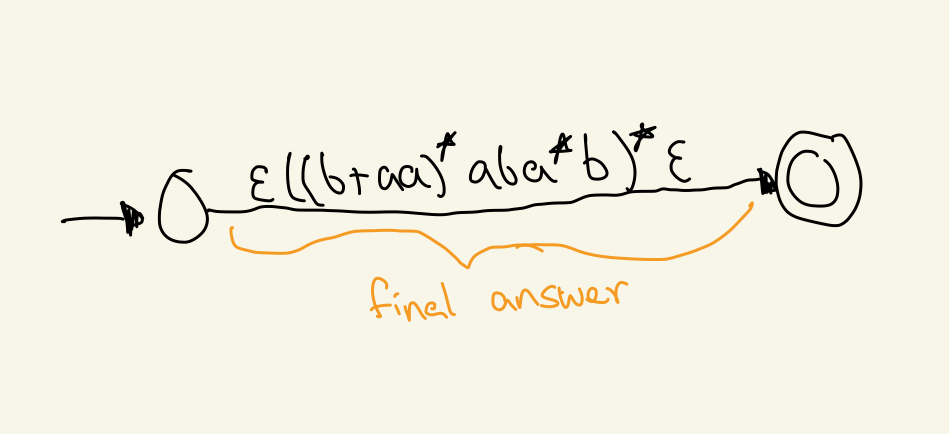 ε((b+aa)* aba*b)* ε
final answer